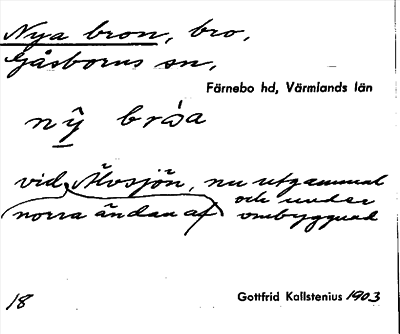 Nya bron, bro,
Gåsborns sn,
Färnebo hd, Värmlands län
nȳ bróa
vid Älvsjön, nu utgammal
och under
norra ändan af ombyggnad
18
Gottfrid Kallstenius 1903